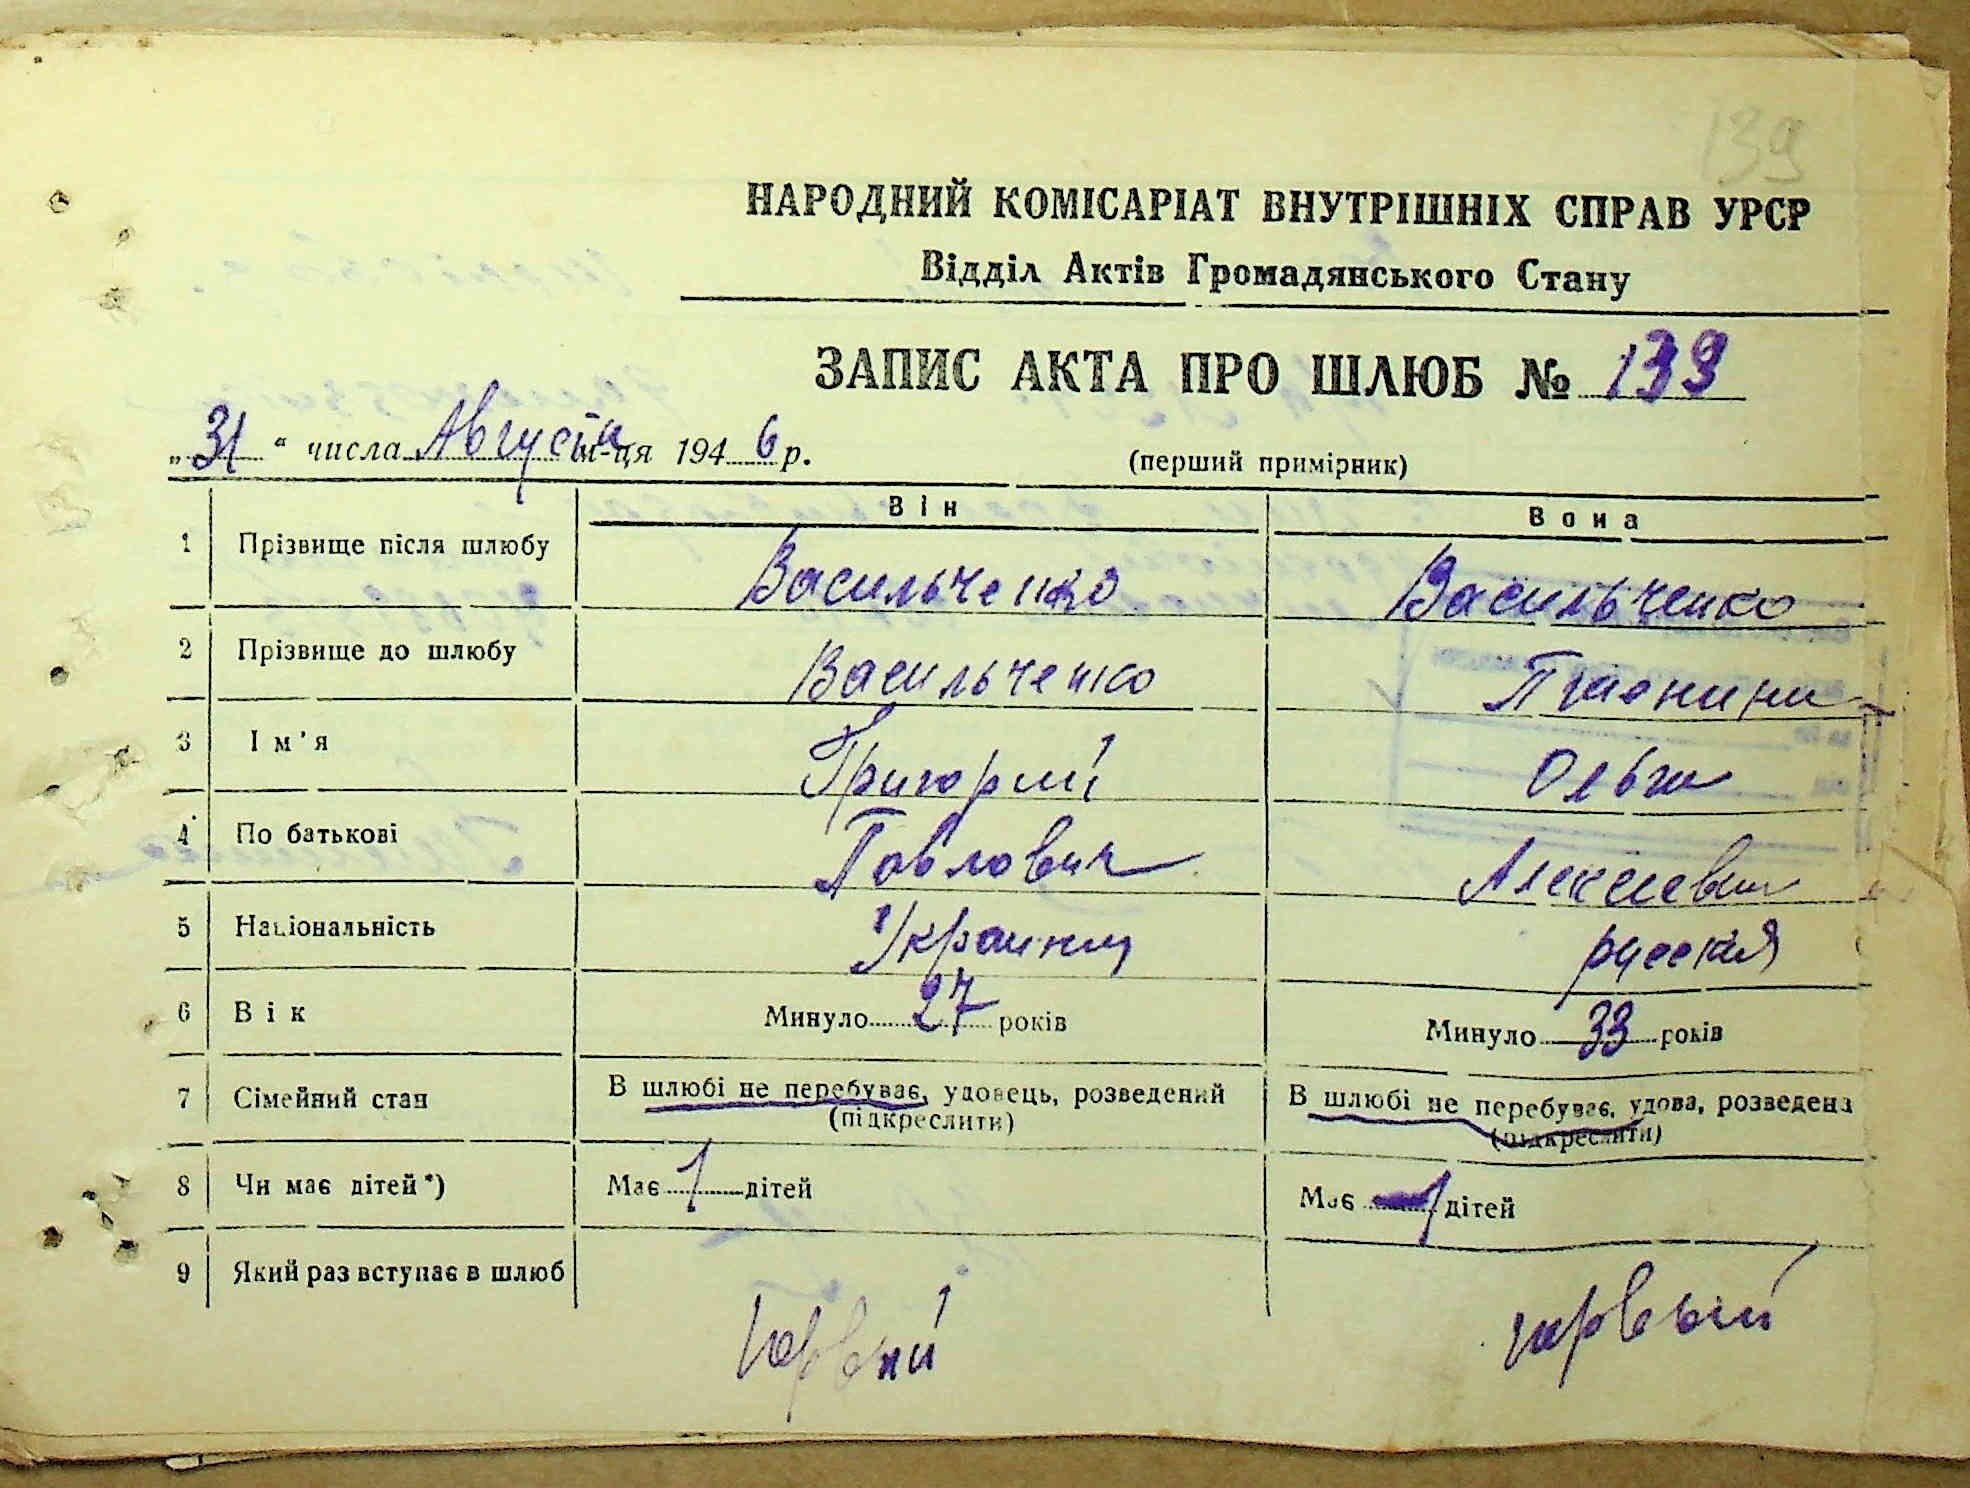 139
НАРОДНИЙ КОМІСАРІАТ ВНУТРІШНІХ СПРАВ УРСР
Відділ Актів Громадянського Стану
ЗАПИС АКТА ПРО ШЛЮБ № 139
„31“ числа Августа м-ця 1946 р. (перший примірник)
Він Вона
1 Прізвище після шлюбу Васильченко Васильченко
2 Прізвище до шлюбу Васильченко
3 Ім'я Григорий Ольга
4 По батькові Павлович Алексеевна
5 Національність Украинец русская
6 Вік Минуло 27 років Минуло 33 років
7 Сімейний стан В шлюбі не перебуває, удовець, розведений В шлюбі не перебуває, удова, розведена
(підкреслити) (підкреслити)
8 Чи має дітей*) Має 1 дітей Має 1 дітей
9 Який раз вступає в шлюб
первый первый